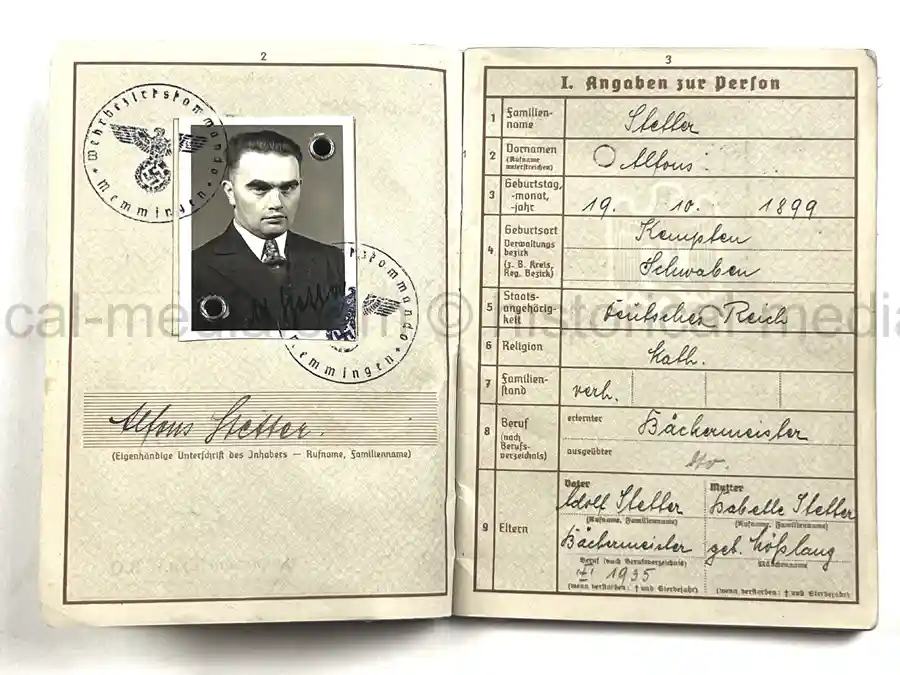 2
Wehrbezirkskommando
Memmingen
Alfons Stetter.
(Eigenhändige Unterschrift des Inhabers — Rufname, Familienname)
3
I. Angaben zur Person
1 Familien-
name
Stetter
2 Vornamen
(Rufname
unterstreichen)
Alfons
3 Geburtstag,
-monat,
-jahr
19. 10. 1899
4 Geburtsort
Verwaltungs
bezirk
(z. B. Kreis,
Reg. Bezirk)
Kempten
Schwaben
5 Staats-
angehörig-
keit
Deutsches Reich
6 Religion
kath.
7 Familien-
stand
verh.
8 Beruf
(nach
Berufs-
verzeichnis)
erlernter
Bäckermeister
ausgeübter
dto.
9 Eltern
Vater
Adolf Stetter
(Rufname, Familienname)
Bäckermeister
Beruf (nach Berufsverzeichnis)
1935
(wenn verstorben: † und Sterbejahr)
Mutter
Stetter
(Rufname, Familienname)
geb.
Mädchenname
(wenn verstorben: † und Sterbejahr)
© historical-media